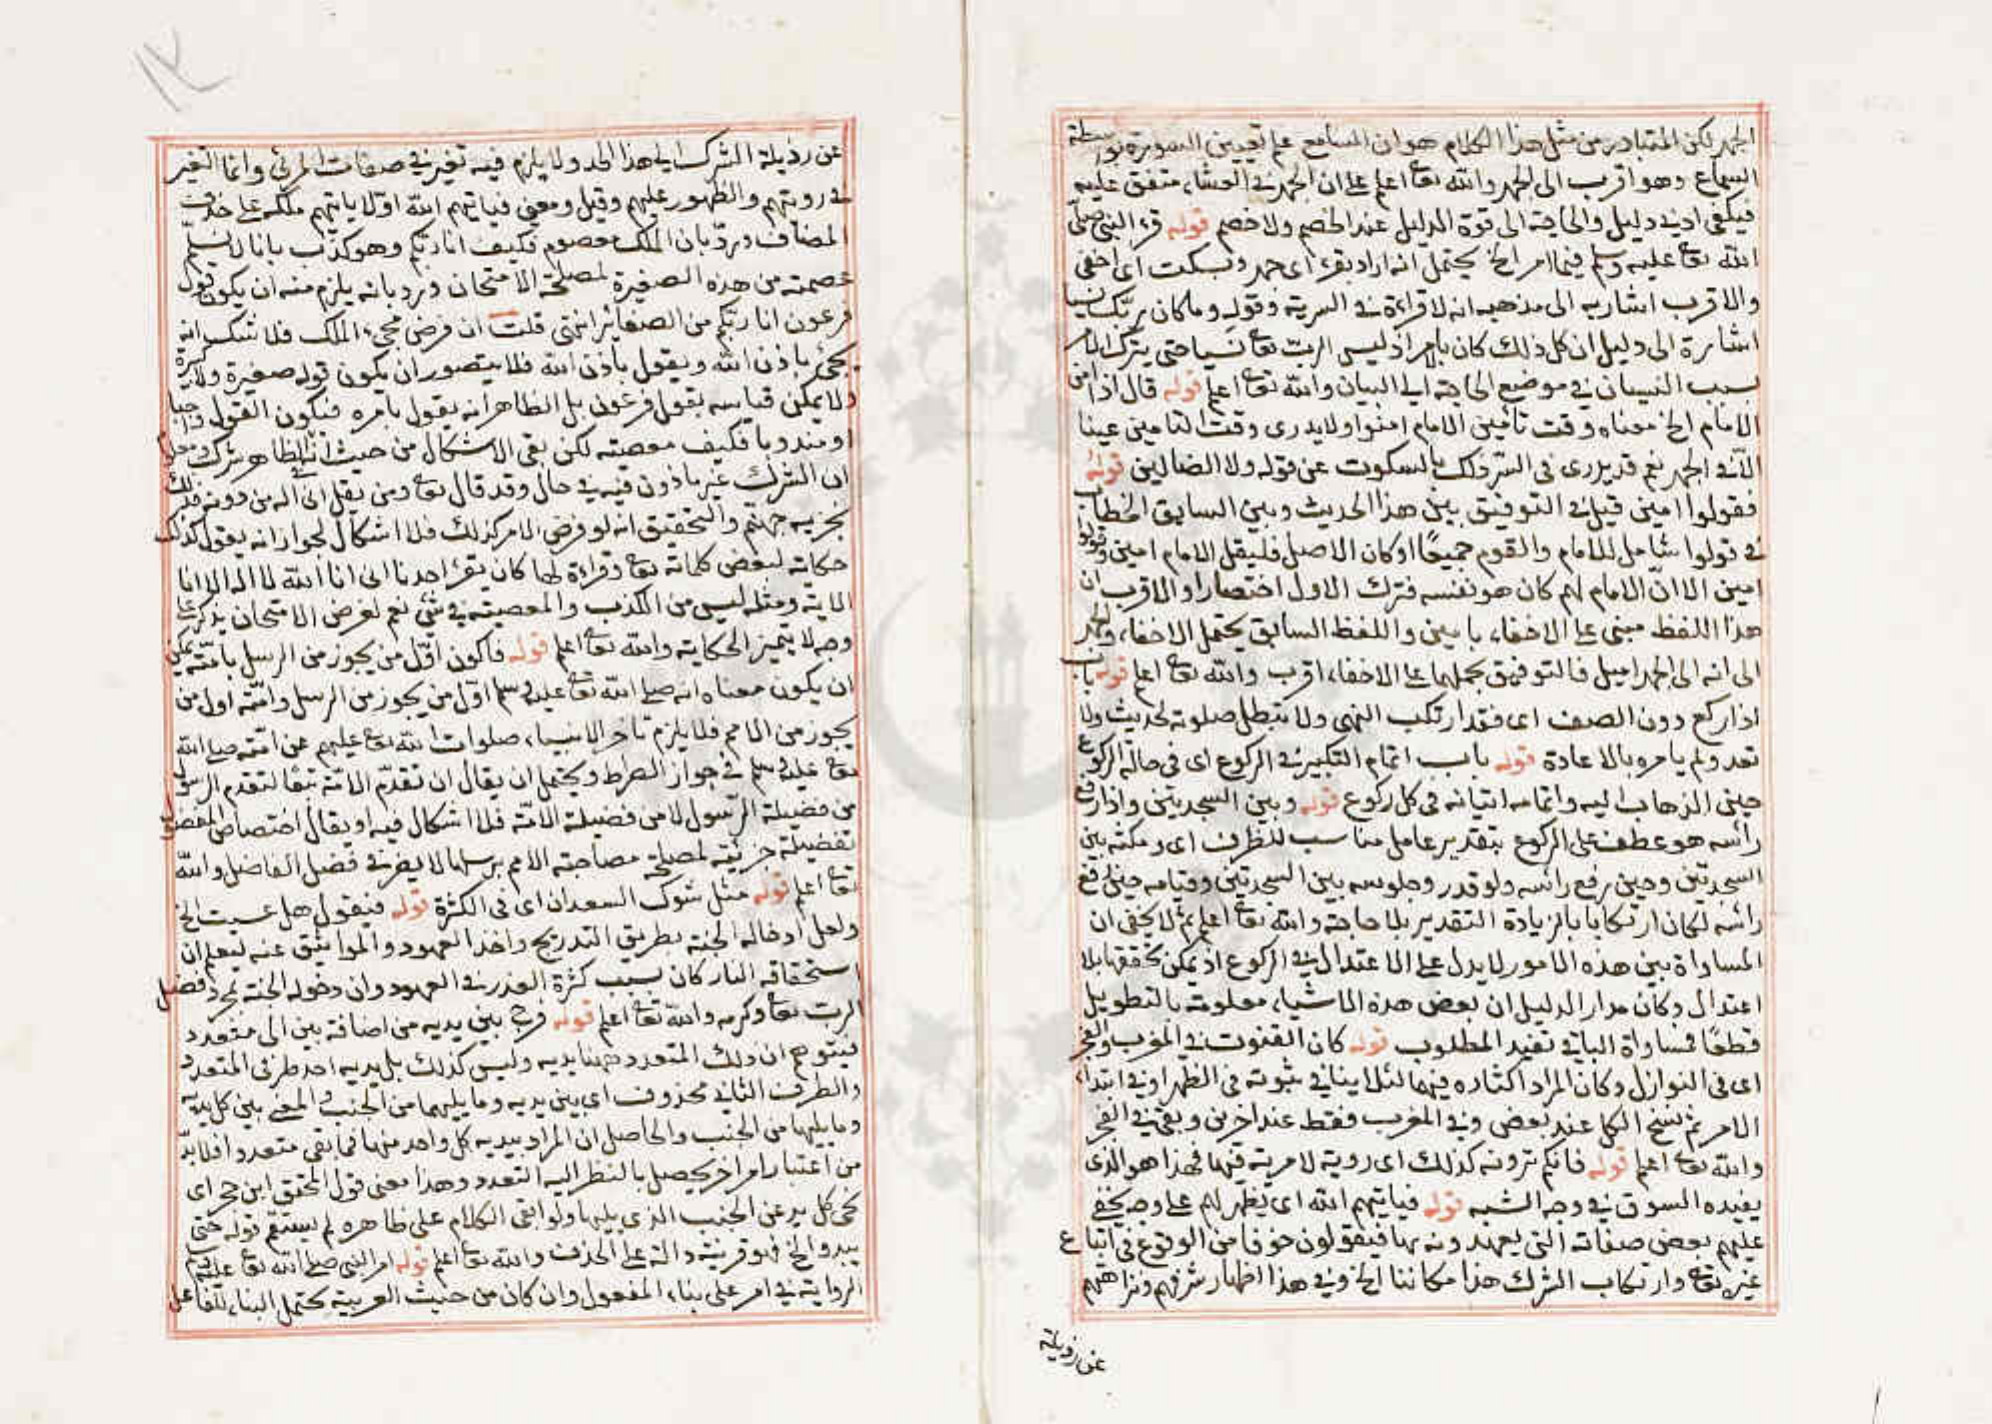 الجهر لكن المتبادر من مثل هذا الكلام هو ان السامع علم تعيين السورة بواسطة
السماع وهو اقرب الى الجهر والله تعا اعلم على ان الجهر في العشاء متفق عليه
فيكفي ادنى دليل والحاجة الى قوة الدليل عند الخصم ولا خصم قوله قرء النبي صلى
الله تعا عليه وسلم فيما امر الخ يحتمل انه اراد بقرء اى جهر وبسكت اى اخفى
والاقرب اشاربه الى مذهبه انه لا قراءة في السرية وقوله وما كان ربك نسيا
اشارة الى دليل ان كل ذلك كان بامر اذ ليس الرب تعا نسيا حتى يترك الامر
بسبب النسيان في موضع الحاجة الى البيان والله تعا اعلم قوله قال اذا امن
الامام الخ معناه وقت تأمين الامام امنوا ولا يدرى وقت التامين عينا
الا في الجهر نعم قد يدرى فى السر ذلك بالسكوت عن قوله ولا الضالين قوله
فقولوا امين قيل في التوفيق بين هذا الحديث وبين السابق الخطاب
في قولوا شامل للامام والقوم جميعًا او كان الاصل فليقل الامام امين وقولوا
امين الا ان الامام لهم كان هو نفسه فترك الاول اختصارا والاقرب ان
هذا اللفظ مبنى على الاخفاء بامين واللفظ السابق يحتمل الاخفاء والجهر
الى انه الى الجهر اميل فالتوفيق بحملهما على الاخفاء اقرب والله تعا اعلم قوله باب
اذا ركع دون الصف اى فقد ارتكب النهى ولا تبطل صلوته لحديث ولا
تعد ولم يامره بالاعادة قوله باب اتمام التكبير في الركوع اى فى حالة الركوع
حين الذهاب اليه واتمامه اتيانه فى كل ركوع قوله وبين السجدتين واذا رفع
رأسه هو عطف على الركوع بتقدير عامل مناسب للظرف اى ومكثه بين
السجدتين وحين رفع رأسه ولو قدر وجلوسه بين السجدتين وقيامه حين رفع
رأسه لكان ارتكابا بالزيادة التقدير بلا حاجة والله تعا اعلم ثم لا يخفى ان
المساواة بين هذه الامور لا يدل على الاعتدال في الركوع اذ يمكن تحققها بلا
اعتدال وكان مدار الدليل ان بعض هذه الاشياء معلومة بالتطويل
قطعًا فمساواة الباقي تفيد المطلوب قوله كان القنوت في المغرب والفجر
اى فى النوازل وكان المراد اكثاره فيهما لئلا ينافي ثبوته فى الظهر او في ابتداء
الامر ثم نسخ الكل عند بعض وفي المغرب فقط عند اخرين وبقي في الفجر
والله تعا اعلم قوله فانكم ترونه كذلك اى روية لا مرية فيها فهذا هو الذى
يفيده السوق في وجه الشبه قوله فياتيهم الله اى يظهر لهم على وجه يخفى
عليهم بعض صفاته التى يعهدونه بها فيقولون خوفا من الوقوع فى اتباع
غيره تعا وارتكاب الشرك هذا مكاننا الخ وفي هذا اظهار شرفهم ونزاهتهم
عن رذيلة
عن رذيلة الشرك الى هذا الحد ولا يلزم فيه تغير في صفات المرئى وانما التغير
في رويتهم والظهور عليهم وقيل ومعنى فياتيهم الله اولا ياتيهم ملكه على حذف
المضاف ورد بان الملك معصوم فكيف انا ربكم وهو كذب بانا لا نسلم
عصمته من هذه الصغيرة لمصلحة الامتحان ورد بانه يلزم منه ان يكون قول
فرعون انا ربكم من الصغائر انتهى قلت ان فرض مجىء الملك فلا شك انه
يجئ باذن الله ويقول باذن الله فلا يتصور ان يكون قوله صغيرة ولا كبيرة
ولا يمكن قياسه بقول فرعون بل الظاهر انه يقول بامره فيكون القول واجبا
او مندوبا فكيف معصية لكن بقى الاشكال من حيث انه الظاهر شرك ومعلوم
ان الشرك غير ماذون فيه في حال وقد قال تعا ومن يقل انى اله من دونه فذلك
نجزيه جهنم والتحقيق انه لو فرض الامر كذلك فلا اشكال لجواز انه يقول كذلك
حكاية لبعض كلماته تعا وقراءة لها كان يقرء احدنا انى انا الله لا اله الا انا
الاية ومثله ليس من الكذب والمعصية في شئ نعم لغرض الامتحان يذكر على
وجه لا يتميز الحكاية والله تعا اعلم قوله فاكون اول من يجوز من الرسل بامته يمكن
ان يكون معناه انه صلى الله تعا عليه وسلم اول من يجوز من الرسل وامته اول من
يجوز من الامم فلا يلزم تاخر الانبياء صلوات الله تعا عليهم عن امته صلى الله
تعا عليه وسلم في جواز الصراط ويحتمل ان يقال ان تقدم الامة تبعًا لتقدم الرسول
من فضيلة الرسول لا من فضيلة الامة فلا اشكال فيه او يقال اختصاص المفضول
بفضيلة جزئية لمصلحة مصاحبة الامم برسلها لا يضر في فضل الفاضل والله
تعا اعلم قوله مثل شوك السعدان اى فى الكثرة قوله فيقول هل عسيت الخ
ولعل ادخاله الجنة بطريق التدريج واخذ العهود والمواثيق عنه ليعلم ان
استحقاقه النار كان بسبب كثرة الغدر في العهود وان دخوله الجنة بمجرد فضل
الرب تعا وكرمه والله تعا اعلم قوله فرج بين يديه من اضافة بين الى متعدد
فيتوهم ان ذلك المتعدد ههنا يديه وليس كذلك بل يديه احد طرفى المتعدد
والطرف الثاني محذوف اى بين يديه وما يليهما من الجنب والمعنى بين كل يديه
وما يليها من الجنب والحاصل ان المراد بيديه كل واحد منها فما بقى متعدد افلا بد
من اعتبار امر اخر يحصل بالنظر اليه التعدد وهذا معنى قول المحقق ابن حجر اى
نحى كل يد عن الجنب الذى يليها ولو ابقى الكلام على ظاهره لم يستقم قوله حتى
يبدو الخ فهو قرينة دالة على الحذف والله تعا اعلم قوله امر النبى صلى الله تعا عليه وسلم
الرواية في امر على بناء المفعول وان كان من حيث العربية يحتمل البناء للفاعل